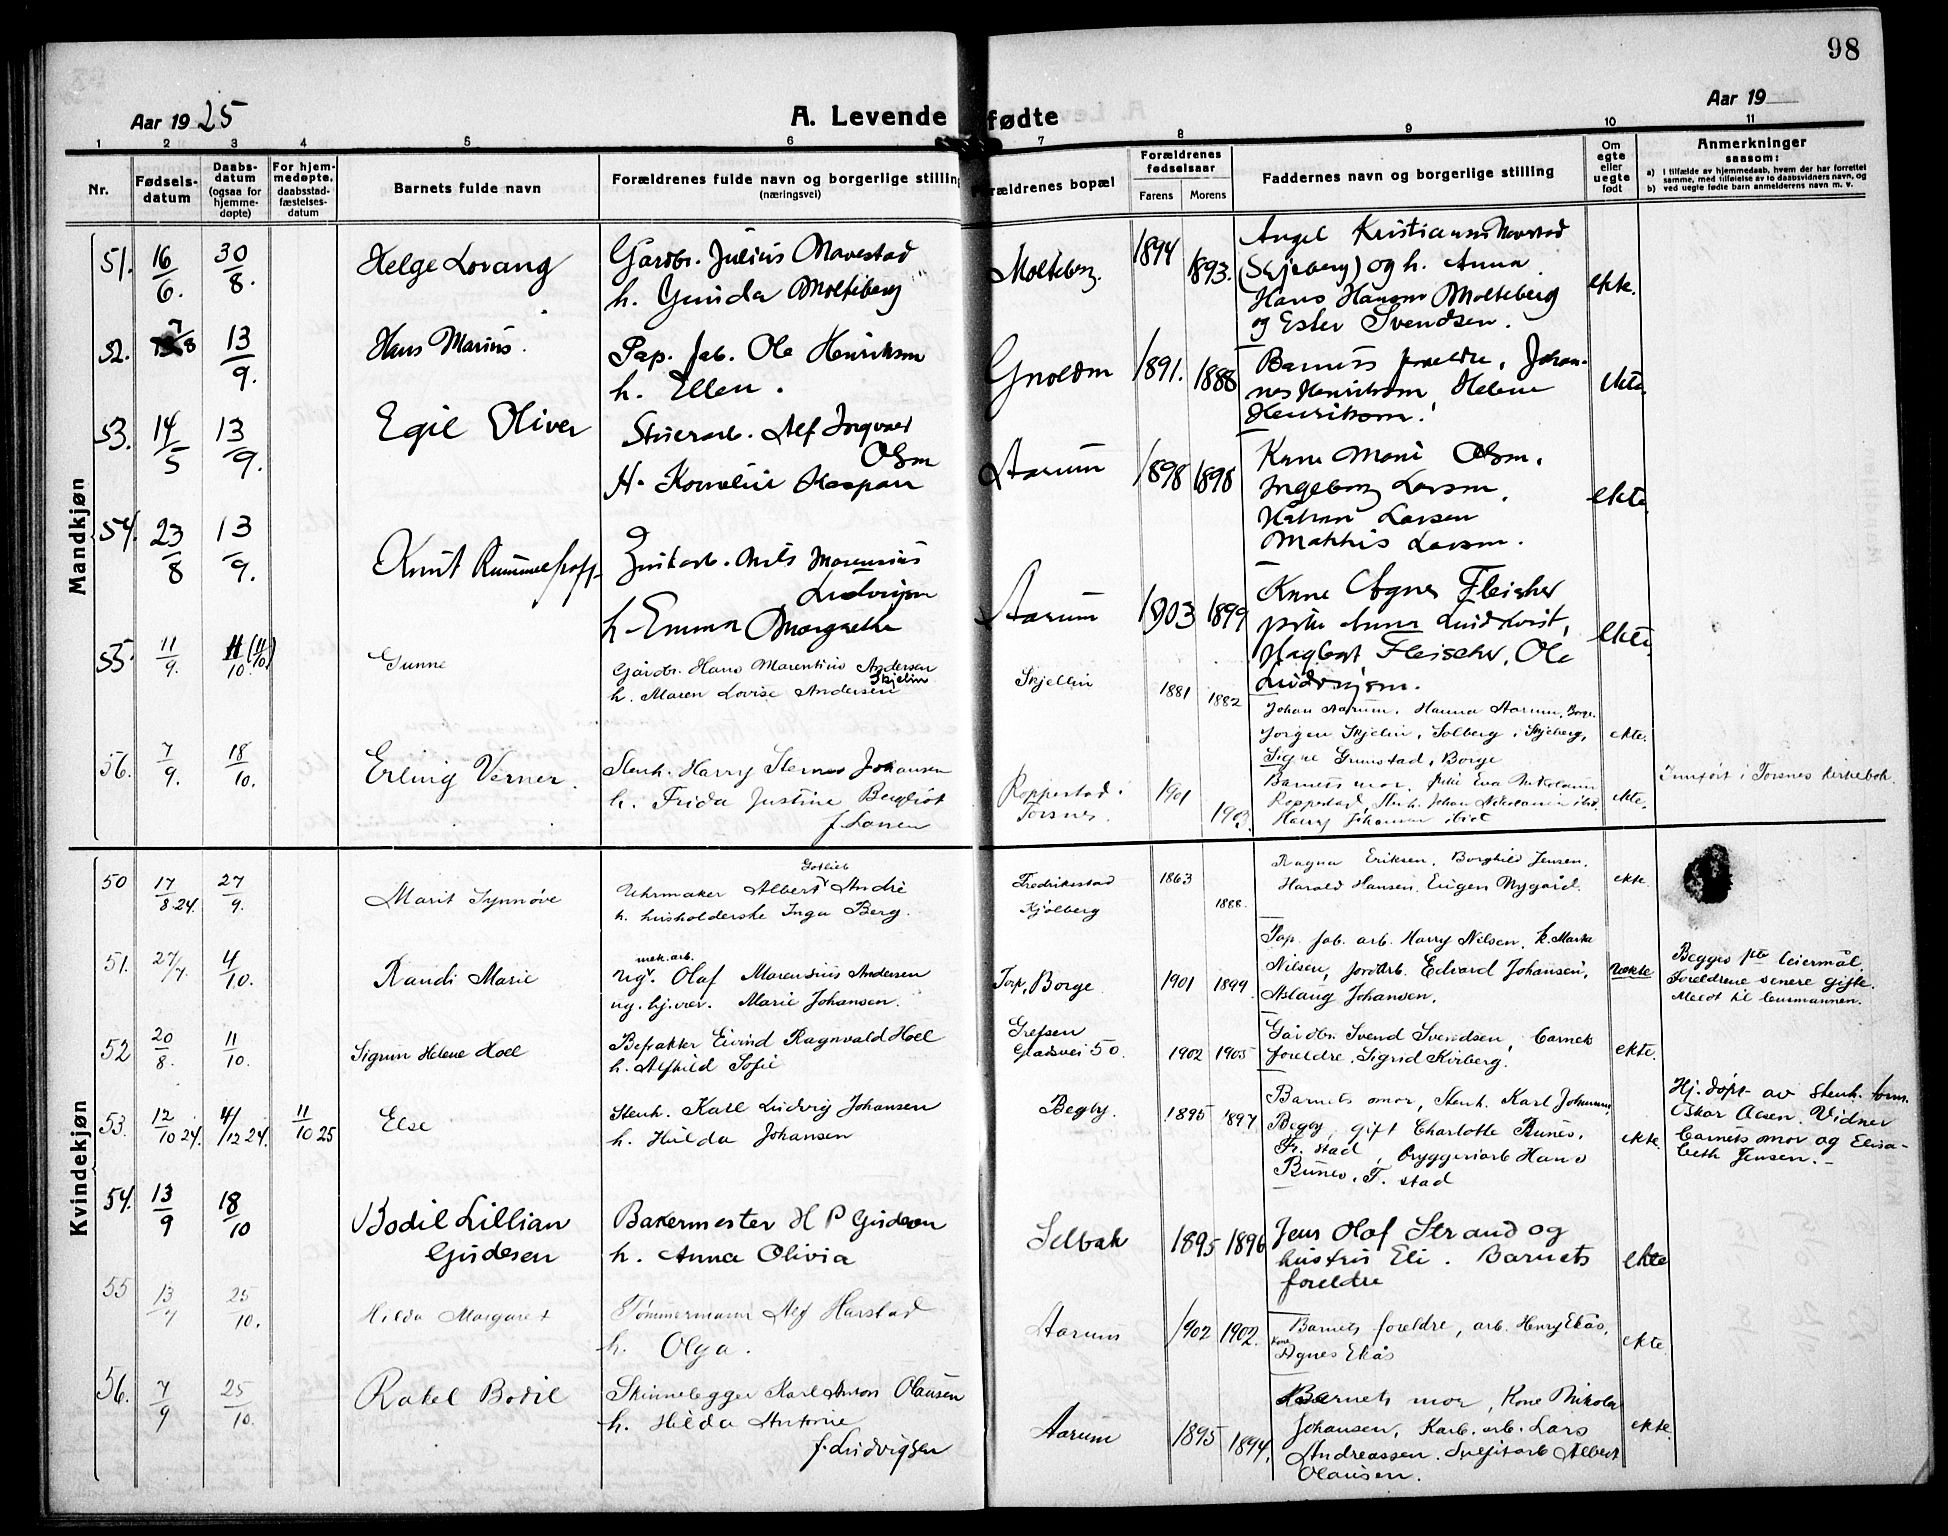 98
Aar 1925
A. Levende fødte
Aar 19
1 2 3 4 5 6 7 8 9 10 11
Nr.
Fødsels-
datum
Daabs-
datum
(ogsaa for
hjemme-
døpte)
For hjem-
medøpte,
daabsstad-
fæstelses-
datum
Barnets fulde navn
Forældrenes fulde navn og borgerlige stilling
(næringsvei)
Forældrenes bopæl
Forældrenes
fødselsaar
Farens Morens
Faddernes navn og borgerlige stilling
Om
egte
eller
uegte
født
Anmerkninger
saasom:
a) i tilfælde av hjemmedaab, hvem der har forrettet
samme, med tilføielse av to daabsvidners navn, og
b) ved uegte fødte barn anmelderens navn m. v.
Mandkjøn
51. 16/6. 30/8. Helge Lovang
Gardbr. Julius Navestad
h. Gunda Molteberg
Molteberg. 1894 1893.
Angel Kristiansen Navestad
(Skjeberg) og h. Anna
Hans Hansen Molteberg
og Ester Svendsen.
ekte.
52. 7/8 13/9. Hans Marius.
Pap. fab. Ole Henriksen
h. Ellen.
1891. 1888
Barnets foreldre, Johan-
nes Henriksen, Helene
Henriksen.
ekte.
53. 14/5 13/9. Egil Oliver
Alf Ingvald
Olsen
H. Kornelie
Aarum 1898 1898
Kone Marie Olsen.
Ingeborg Larsen,
Håkon Larsen
Mathis Larsen.
ekte
54. 23/8 13/9. Knut Rummelhoff
Nils Marensius
Ludvigsen
h. Emma Margrethe
Aarum 1903 1899
Kone Agnes Fleischer
frk. Anna Lindkvist,
Hagbart Fleischer, Ole
Ludvigsen.
ekte.
55. 11/9. 11/10. (11/10) Gunne
Gårdbr. Hans Marentius Andersen
Skjelin
h. Maren Lovise Andersen
Skjellin 1881 1882
Johan Aarum, Hanna Aarum, Borge.
Jørgen Skjelin, Solberg i Skjeberg,
Signe Grimstad, Borge
ekte.
56. 7/9. 18/10. Erling Verner.
Stenh. Harry Johansen
h. Frida Justine Bergliot
f. Larsen
Roppestad i
Torsnes. 1901 1903.
Barnets mor, frk. Eva Nikolaisen
Roppestad, Stenh. Johan Nikolaisen ibid.
Harry Johansen ibid
ekte.
Innført i Torsnes kirkebok.
Kvindekjøn
50 17/8.24. 27/9. Marit Synnøve
Gotlieb
Uhrmaker Albert André
h. husholderske Inga Berg.
Fredriksstad
Kjølberg 1863 1888.
Ragna Eriksen, Borghild Jensen,
Harald Hansen, Eugen Nygård.
ekte.
51. 27/7. 4/10. Randi Marie
mek. arb.
Ug. Olaf Marensius Andersen
ug. hj.vær. Marie Johansen.
Torp, Borge 1901 1899
Pap. fab. arb. Harry Nilsen, h. Marta
Nilsen, jordarb. Edvard Johansen,
Aslaug Johansen.
uekte
Begges 1ste leiermål.
Foreldrene senere gifte.
Meldt til lensmannen.
52 20/8. 11/10. Sigrun Helene Hoel
Befrakter Eivind Ragnvald Hoel
h. Alfhild Sofie
Grefsen
Gladsvei 50. 1902 1905
Gårdbr. Svend Svendsen, barnets
foreldre, Sigrid Kirberg.
ekte.
53. 12/10 24. 4/12 24. 11/10 25 Else
Stenh. Karl Ludvig Johansen
h. Hilda Johansen
Begby. 1895 1897
Barnets mor, Stenh. Karl Johansen
Begby, gift Charlotte Bunes,
Fr. stad, bryggeriarb Hans
Bunes, F. stad
ekte.
Hj. døpt av Stenh. form.
Oskar Olsen. Vidner
barnets mor og Elisa-
beth Jensen.-
54. 13/9 18/10 Bodil Lillian
Gudesen
Bakermester H P Gudesen
h. Anna Olivia
Selbak 1895 1896
Jens Olaf Strand og
hustru Eli. Barnets
foreldre
ekte
55 13/7 25/10. Hilda Margaret
Tømmermann Alf Harstad
h. Olga.
Aarum 1902 1902.
Barnets foreldre, arb. Henry Ekås,
kone
Agnes Ekås
ekte
56. 7/9 25/10. Rakel Bodil
Skinnelegger Karl Anton Olausen
h. Hilda Antonie
f. Ludvigsen
Aarum 1895 1894.
Barnets mor, Kone Nikola
Johansen, Karb. arb. Lars
Andreassen. Sulfitarb Albert
Olausen.
ekte.